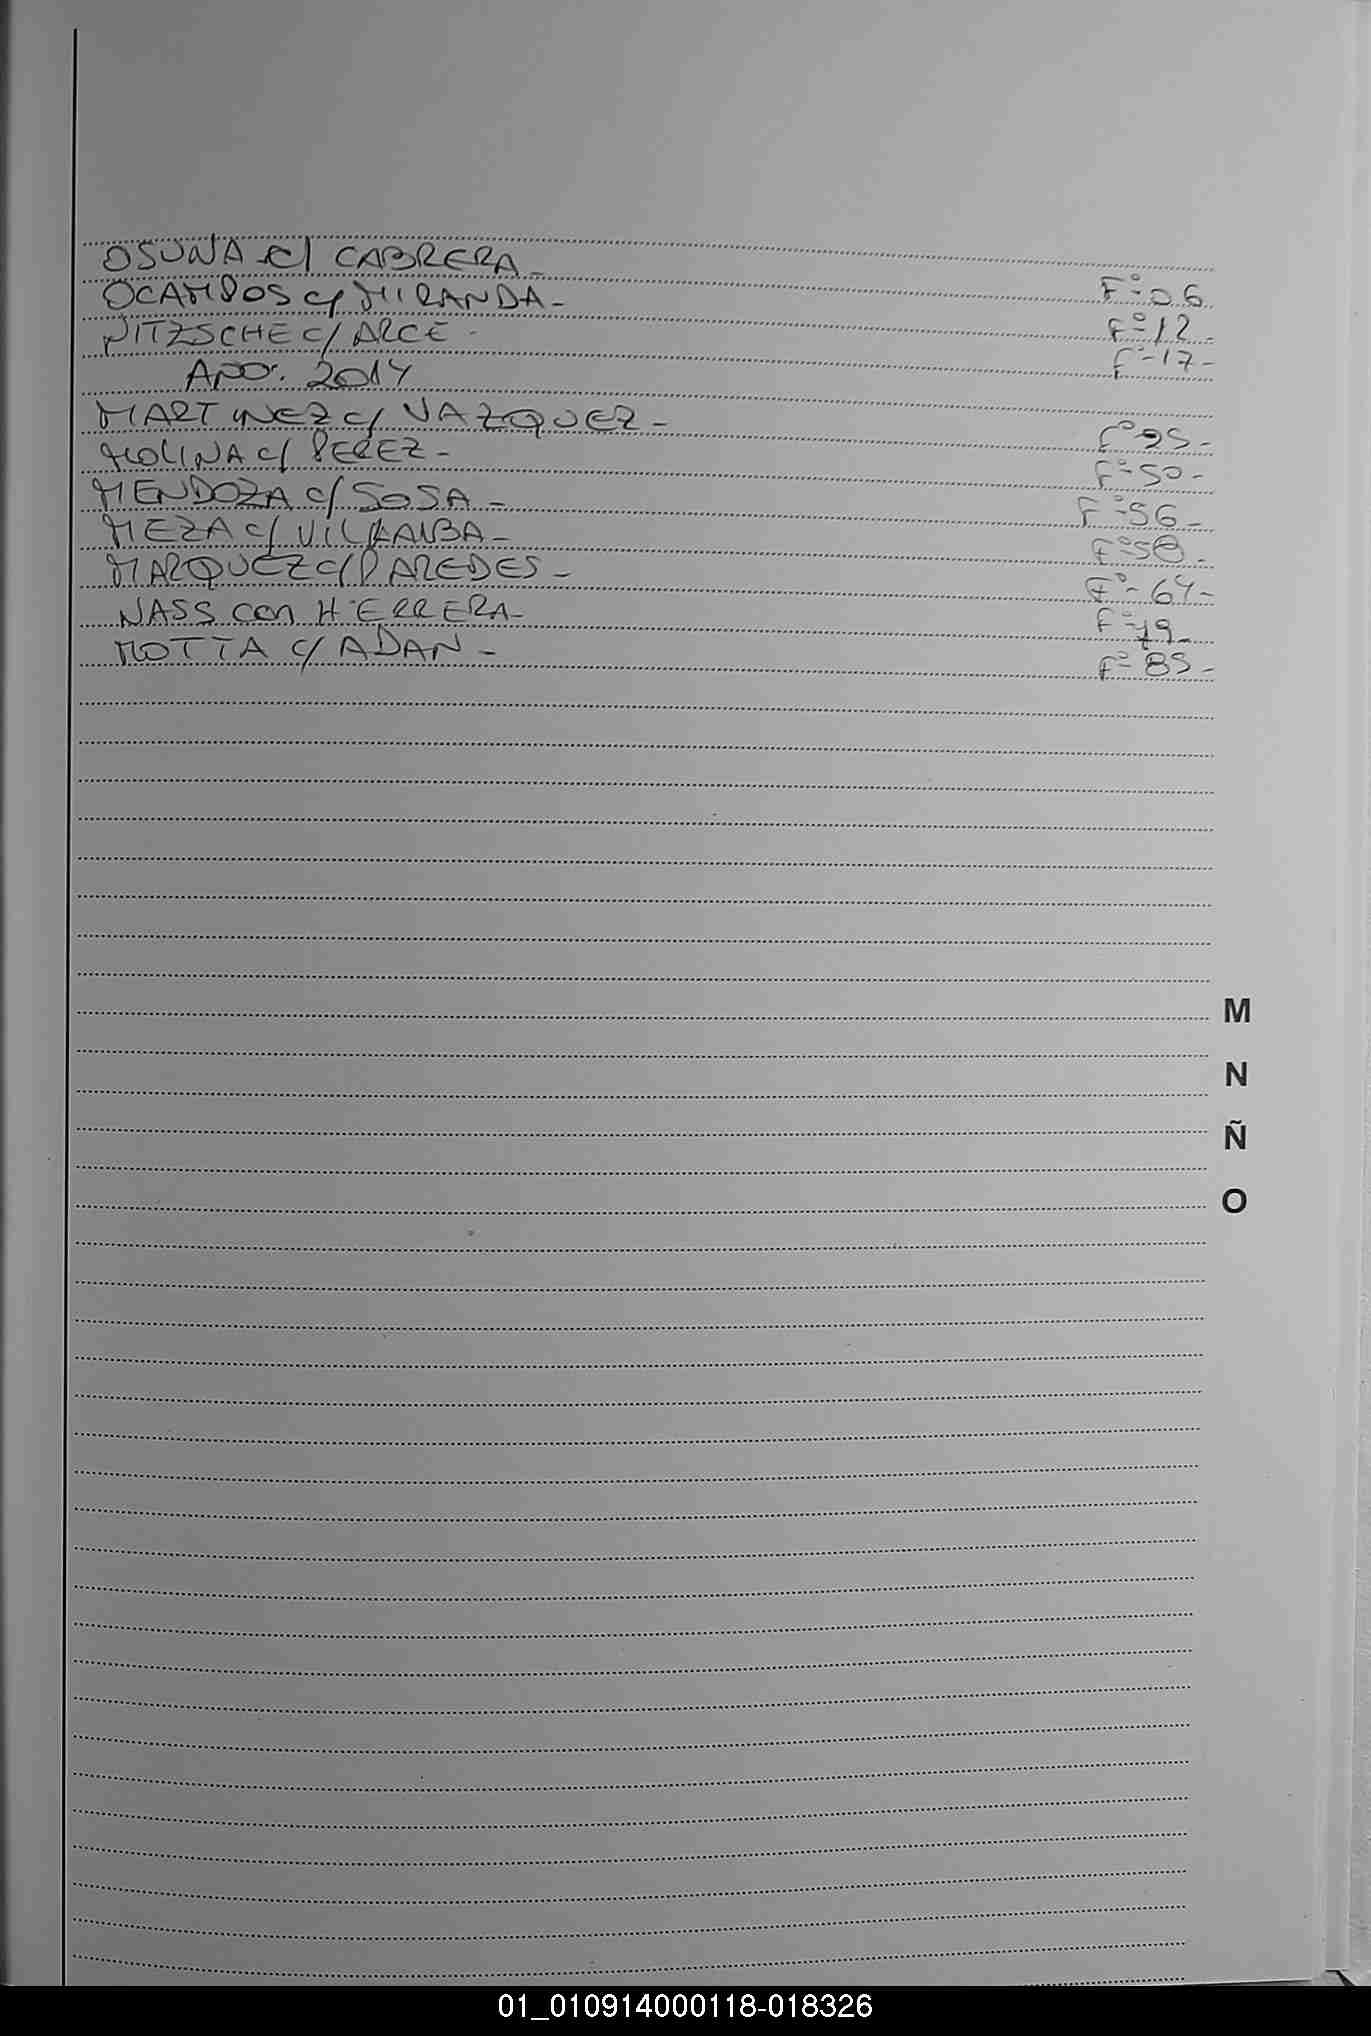 OSUNA c/ CABRERA - F° 06
OCAMPOS c/ MIRANDA - F° 12 -
NITZSCHE c/ ARCE - F° 17 -
AÑO: 2014
MARTINEZ c/ VAZQUEZ - F° -
MOLINA c/ PEREZ - F° 50 -
MENDOZA c/ SOSA - F° 56 -
MEZA c/ VILLALBA - F° 58 -
MARQUEZ c/ PAREDES - F° 64 -
NASS con HERRERA - F° -
MOTTA c/ ADAN - F° 85 -
M
N
Ñ
O
01_010914000118-018326